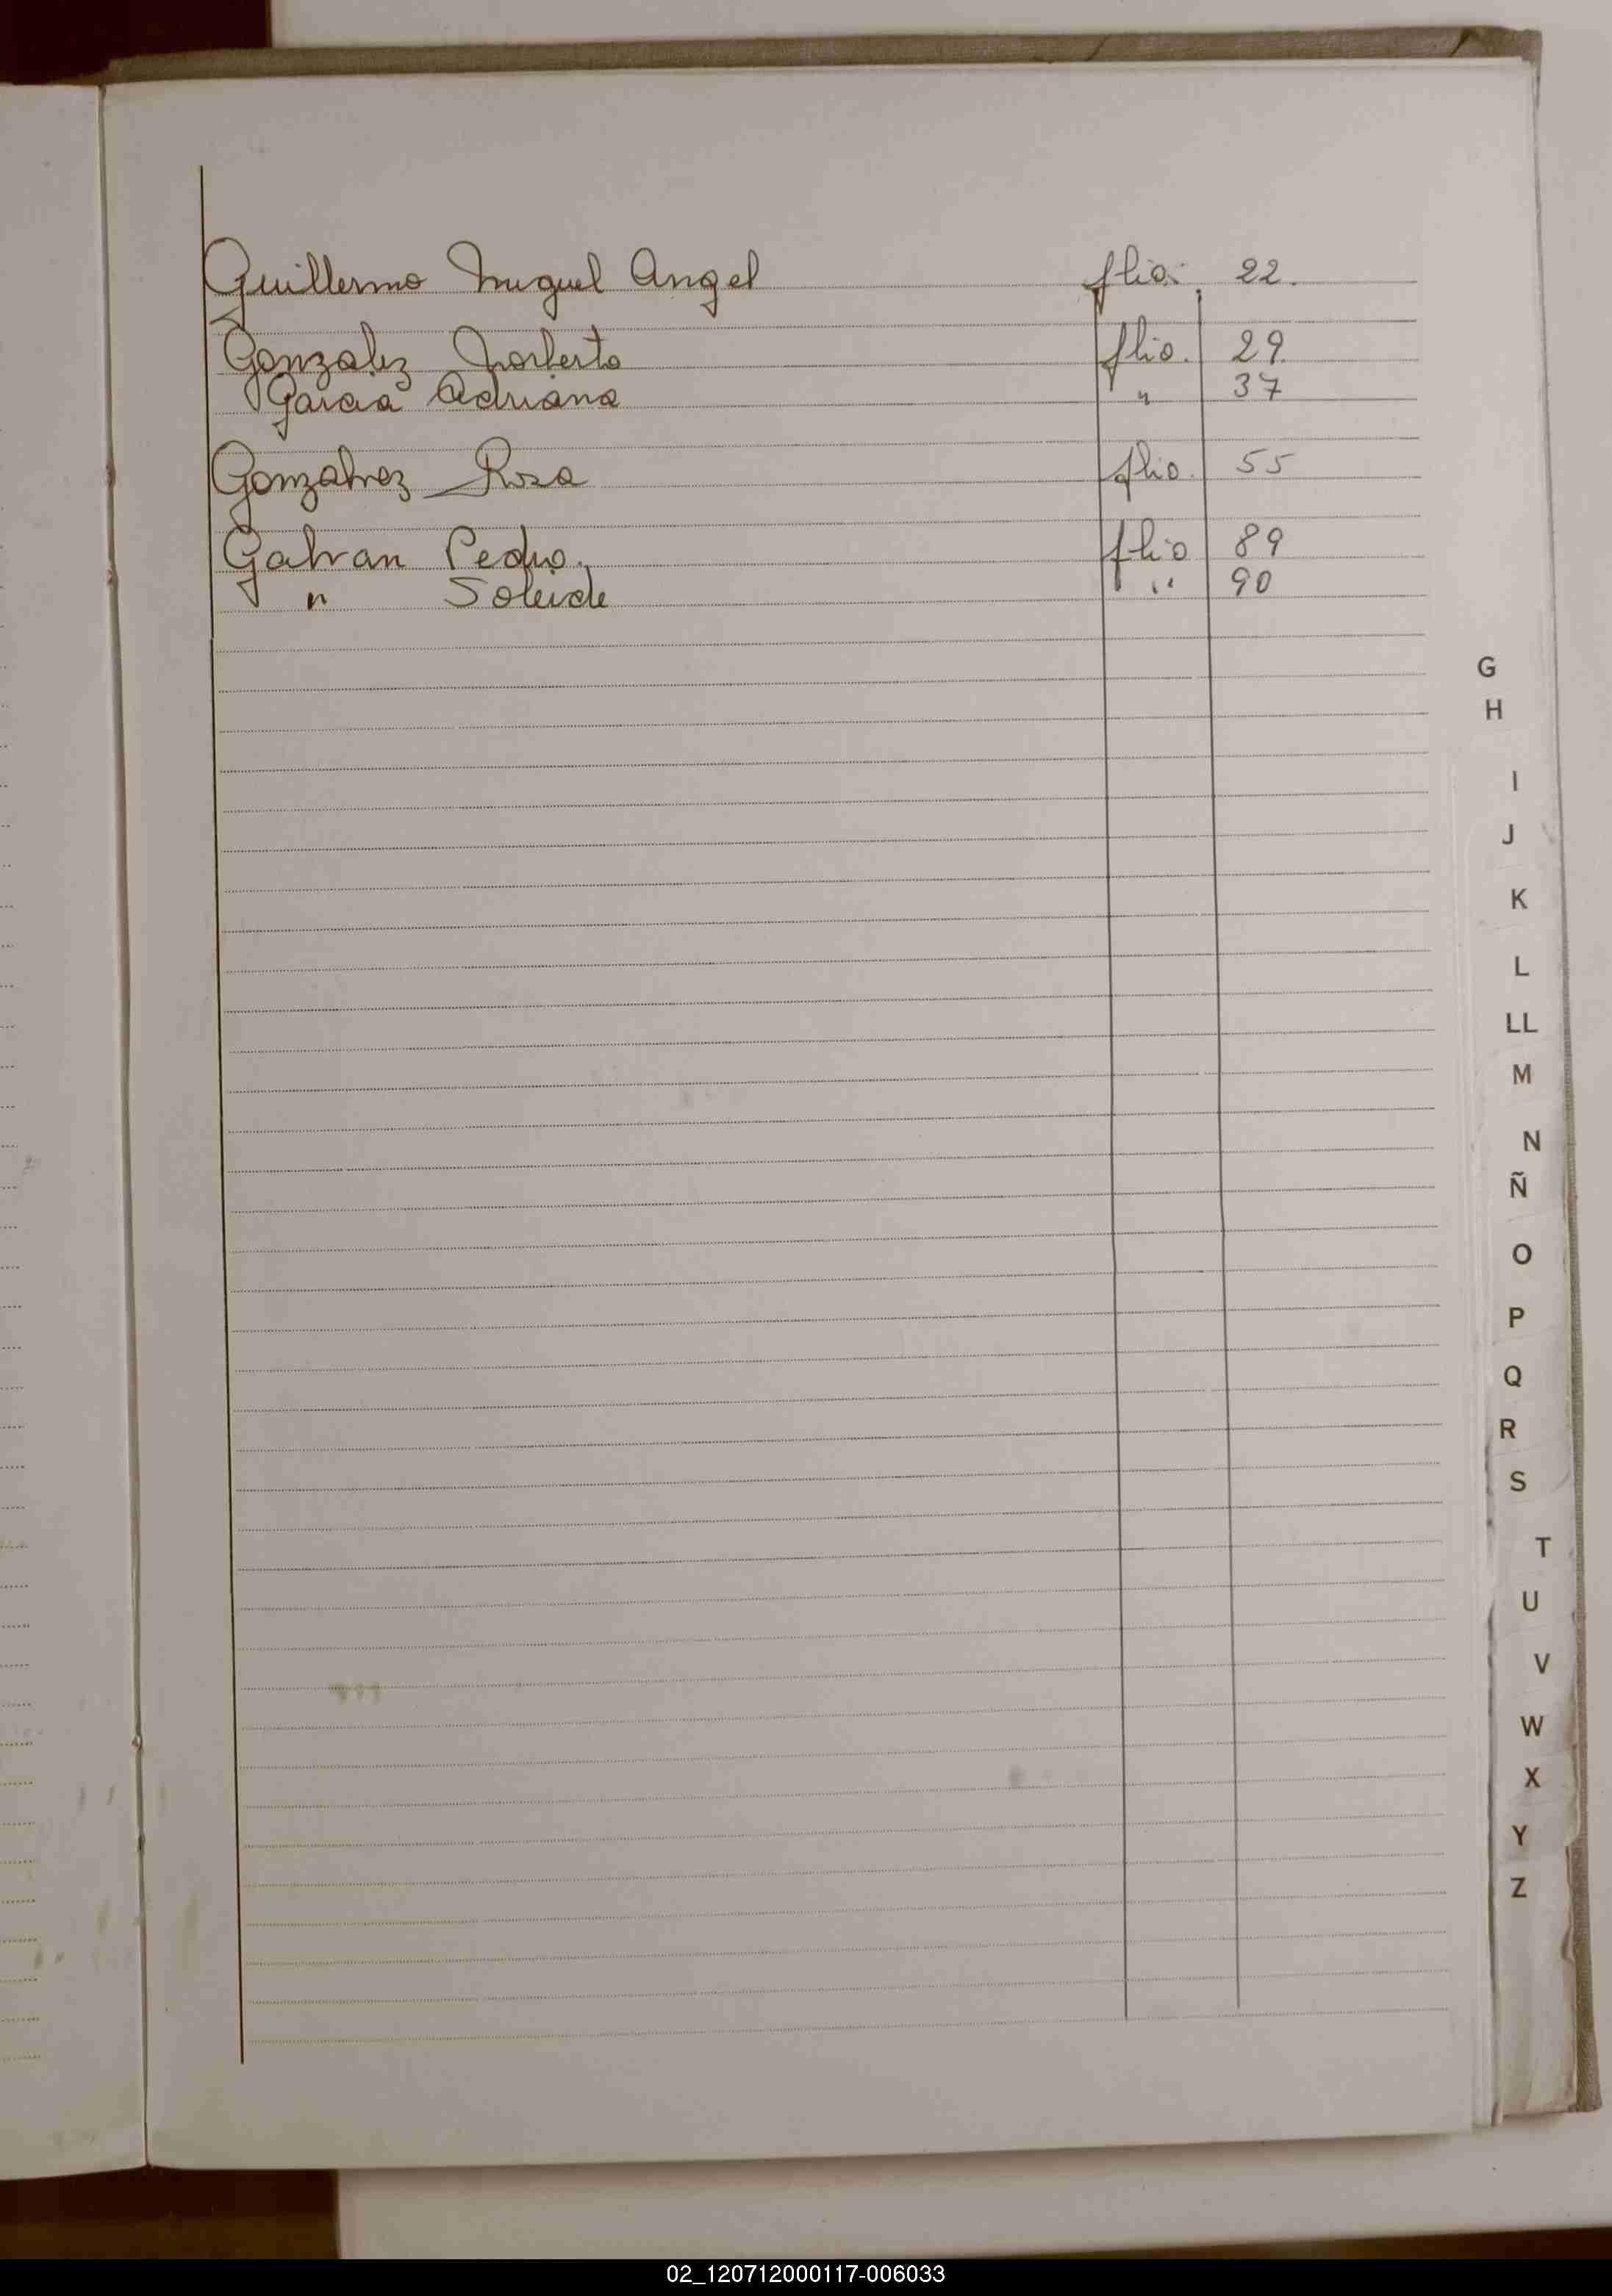 Guillermo Miguel Angel flio: 22.
Gonzalez Norberto flio. 29.
Garcia Adriana " 37
Gonzalvez Rosa flio. 55
Galvan Pedro. flio 89
" " 90
G
H
I
J
K
L
LL
M
N
Ñ
O
P
Q
R
S
T
U
V
W
X
Y
Z
02_120712000117-006033